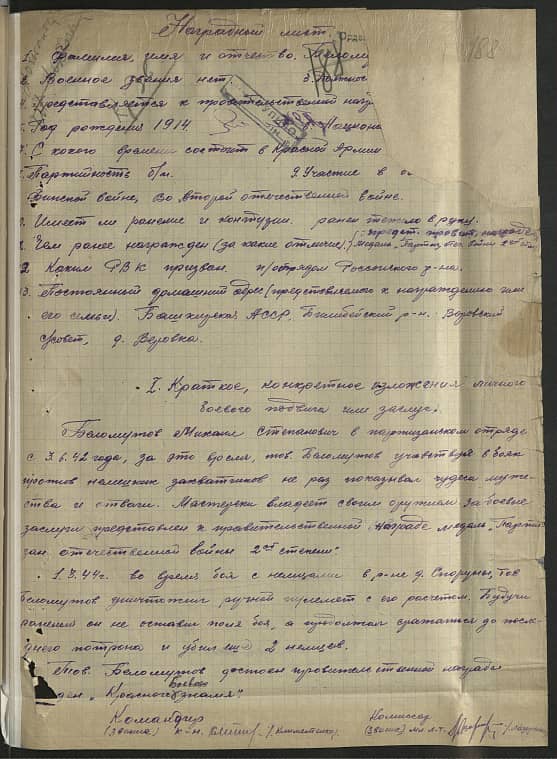 Наградный лист.
1. Фамилия, имя и отчество. Беломут
2. Военное звание нет. 3. Должнос
4. Представляется к правительственной наг
5. Год рождения 1914. Национ
7. С какого времени состоит в Красной Армии
8. Партийность б/п. 9. Участие в
Финской войне, во второй отечественной войне.
Имеет ли ранение и контузии. ранен тяжело в руку.
Чем ранее награжден (за какие отличие).
предст. правит. наградой
медаль „Партиз. отеч. войны 2ой ст
2. Каким РВК призван. п/отрядом Россонского р-на.
3. Постоянный домашний адрес (представляемого к награждению или
его семьи). Башкирская АССР, Бишбейский р-н.
с/совет, д. Веровка.
I. Краткое, конкретное изложения личного
боевого подвига или заслуг.
Беломутов Михаил Степанович в партизанском отряде
с 42 года, за это время, тов. Беломутов участвуя в боях
против немецких захватчиков не раз показывал чудеса муже-
ства и отваги. Мастерски владеет своим оружием. За боевые
заслуги представлен к правительственной награде медаль „Парти
зан отечественной войны 2ой степени".
44г. во время боя с немцами в р-не д. Тов
Беломутов уничтожил ручной пулемет с его расчетом. Будучи
раненым он не оставил поля боя, а продолжал сражаться до после-
днего патрона и убил еще 2 немцев.
Тов. Беломутов достоен правительственной награды
ден „Красного боевого знамя".
Командир
(звания) к-н.
Комиссар
(звания) мл. л-т.
188